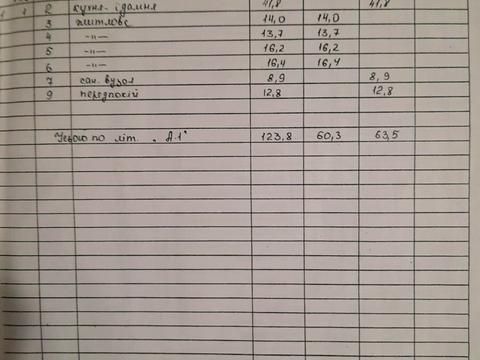 1 1 2 кухня-їдальня 41,8 41,8
3 житлове 14,0 14,0
4 -"- 13,7 13,7
5 -"- 16,2 16,2
6 -"- 16,4 16,4
7 сан. вузол 8,9 8,9
9 передпокій 12,8 12,8
Усього по літ. „А-1" 123,8 60,3 63,5